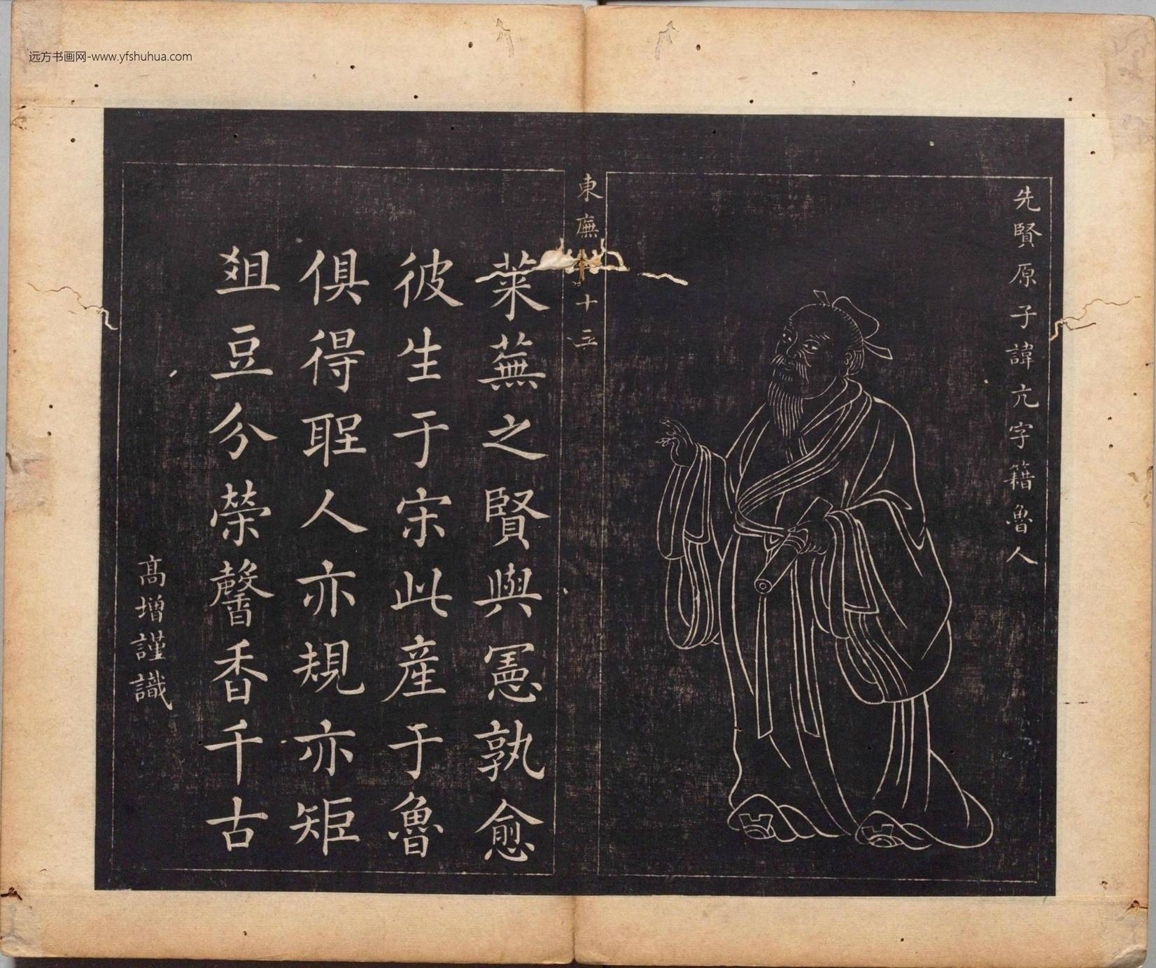 远方书画网-www.yfshuhua.com
先賢原子諱亢字籍魯人
東廡 十三
萊蕪之賢與憲孰愈
彼生于宋此産于魯
俱得聖人亦規亦矩
俎豆分榮馨香千古
高增謹識